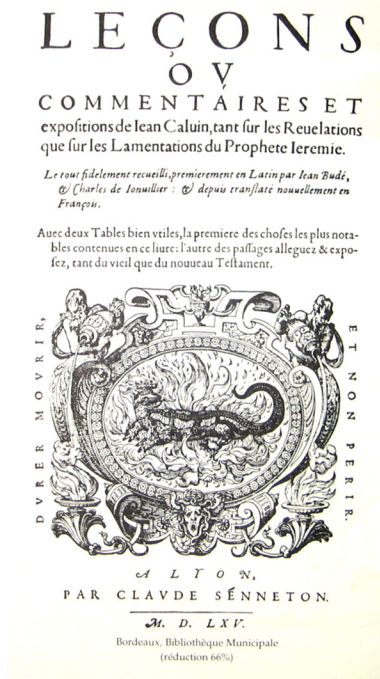 LEÇONS
OV
COMMENTAIRES ET
expositions de Iean Caluin, tant sur les Reuelations
que sur les Lamentations du Prophete Ieremie.
Le tout fidelement recueilli, premierement en Latin par Iean Budé,
& Charles de Ionuillier : & depuis translaté nouuellement en
François.
Auec deux Tables bien vtiles, la premiere des choses les plus nota-
bles contenues en ce liure: l'autre des passages alleguez & expo-
sez, tant du vieil que du nouueau Testament.
DVRER MOVRIR,
ET NON PERIR.
A LYON,
PAR CLAVDE SENNETON.
M. D. LXV.
Bordeaux, Bibliothèque Municipale
(réduction 66%)